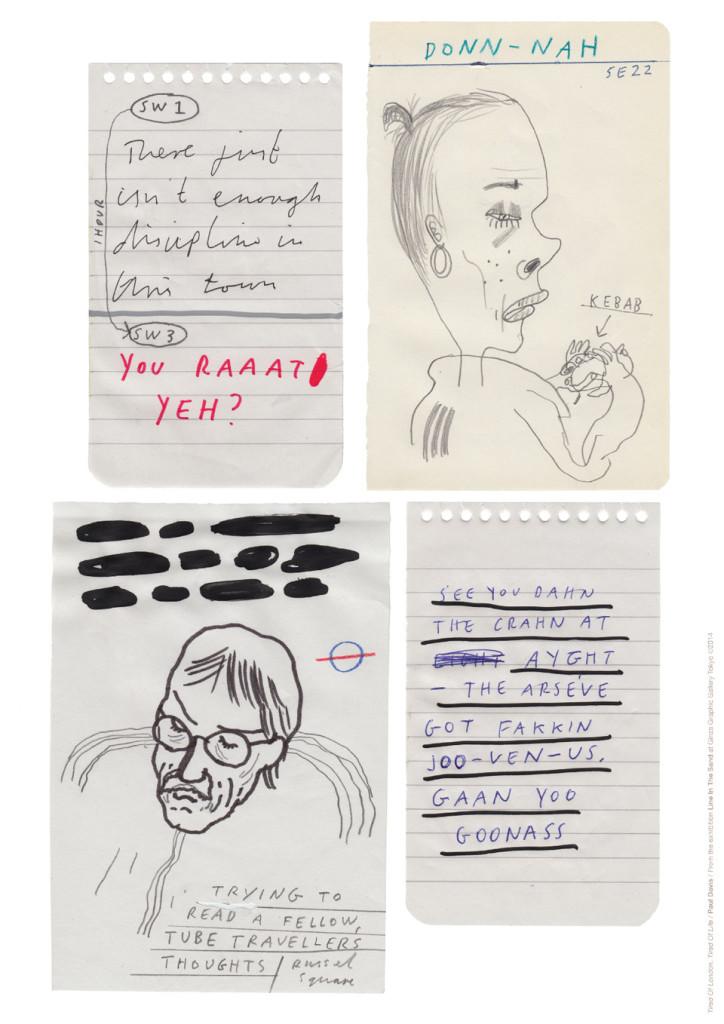 SW1
There just
isn't enough
discipline in
this town
1 HOUR
SW3
YOU RAAAT
YEH?
DONN-NAH
SE22
KEBAB
TRYING TO
READ A FELLOW,
TUBE TRAVELLERS
THOUGHTS / Russel
Square
SEE YOU DAHN
THE CRAHN AT
EIGHT AYGHT
- THE ARSEVE
GOT FAKKIN
JOO-VEN-US.
GAAN YOO
GOONASS
Tired Of London, Tired Of Life / Paul Davis / From the exhibition Line In The Sand at Ginza Graphic Gallery Tokyo ©2014